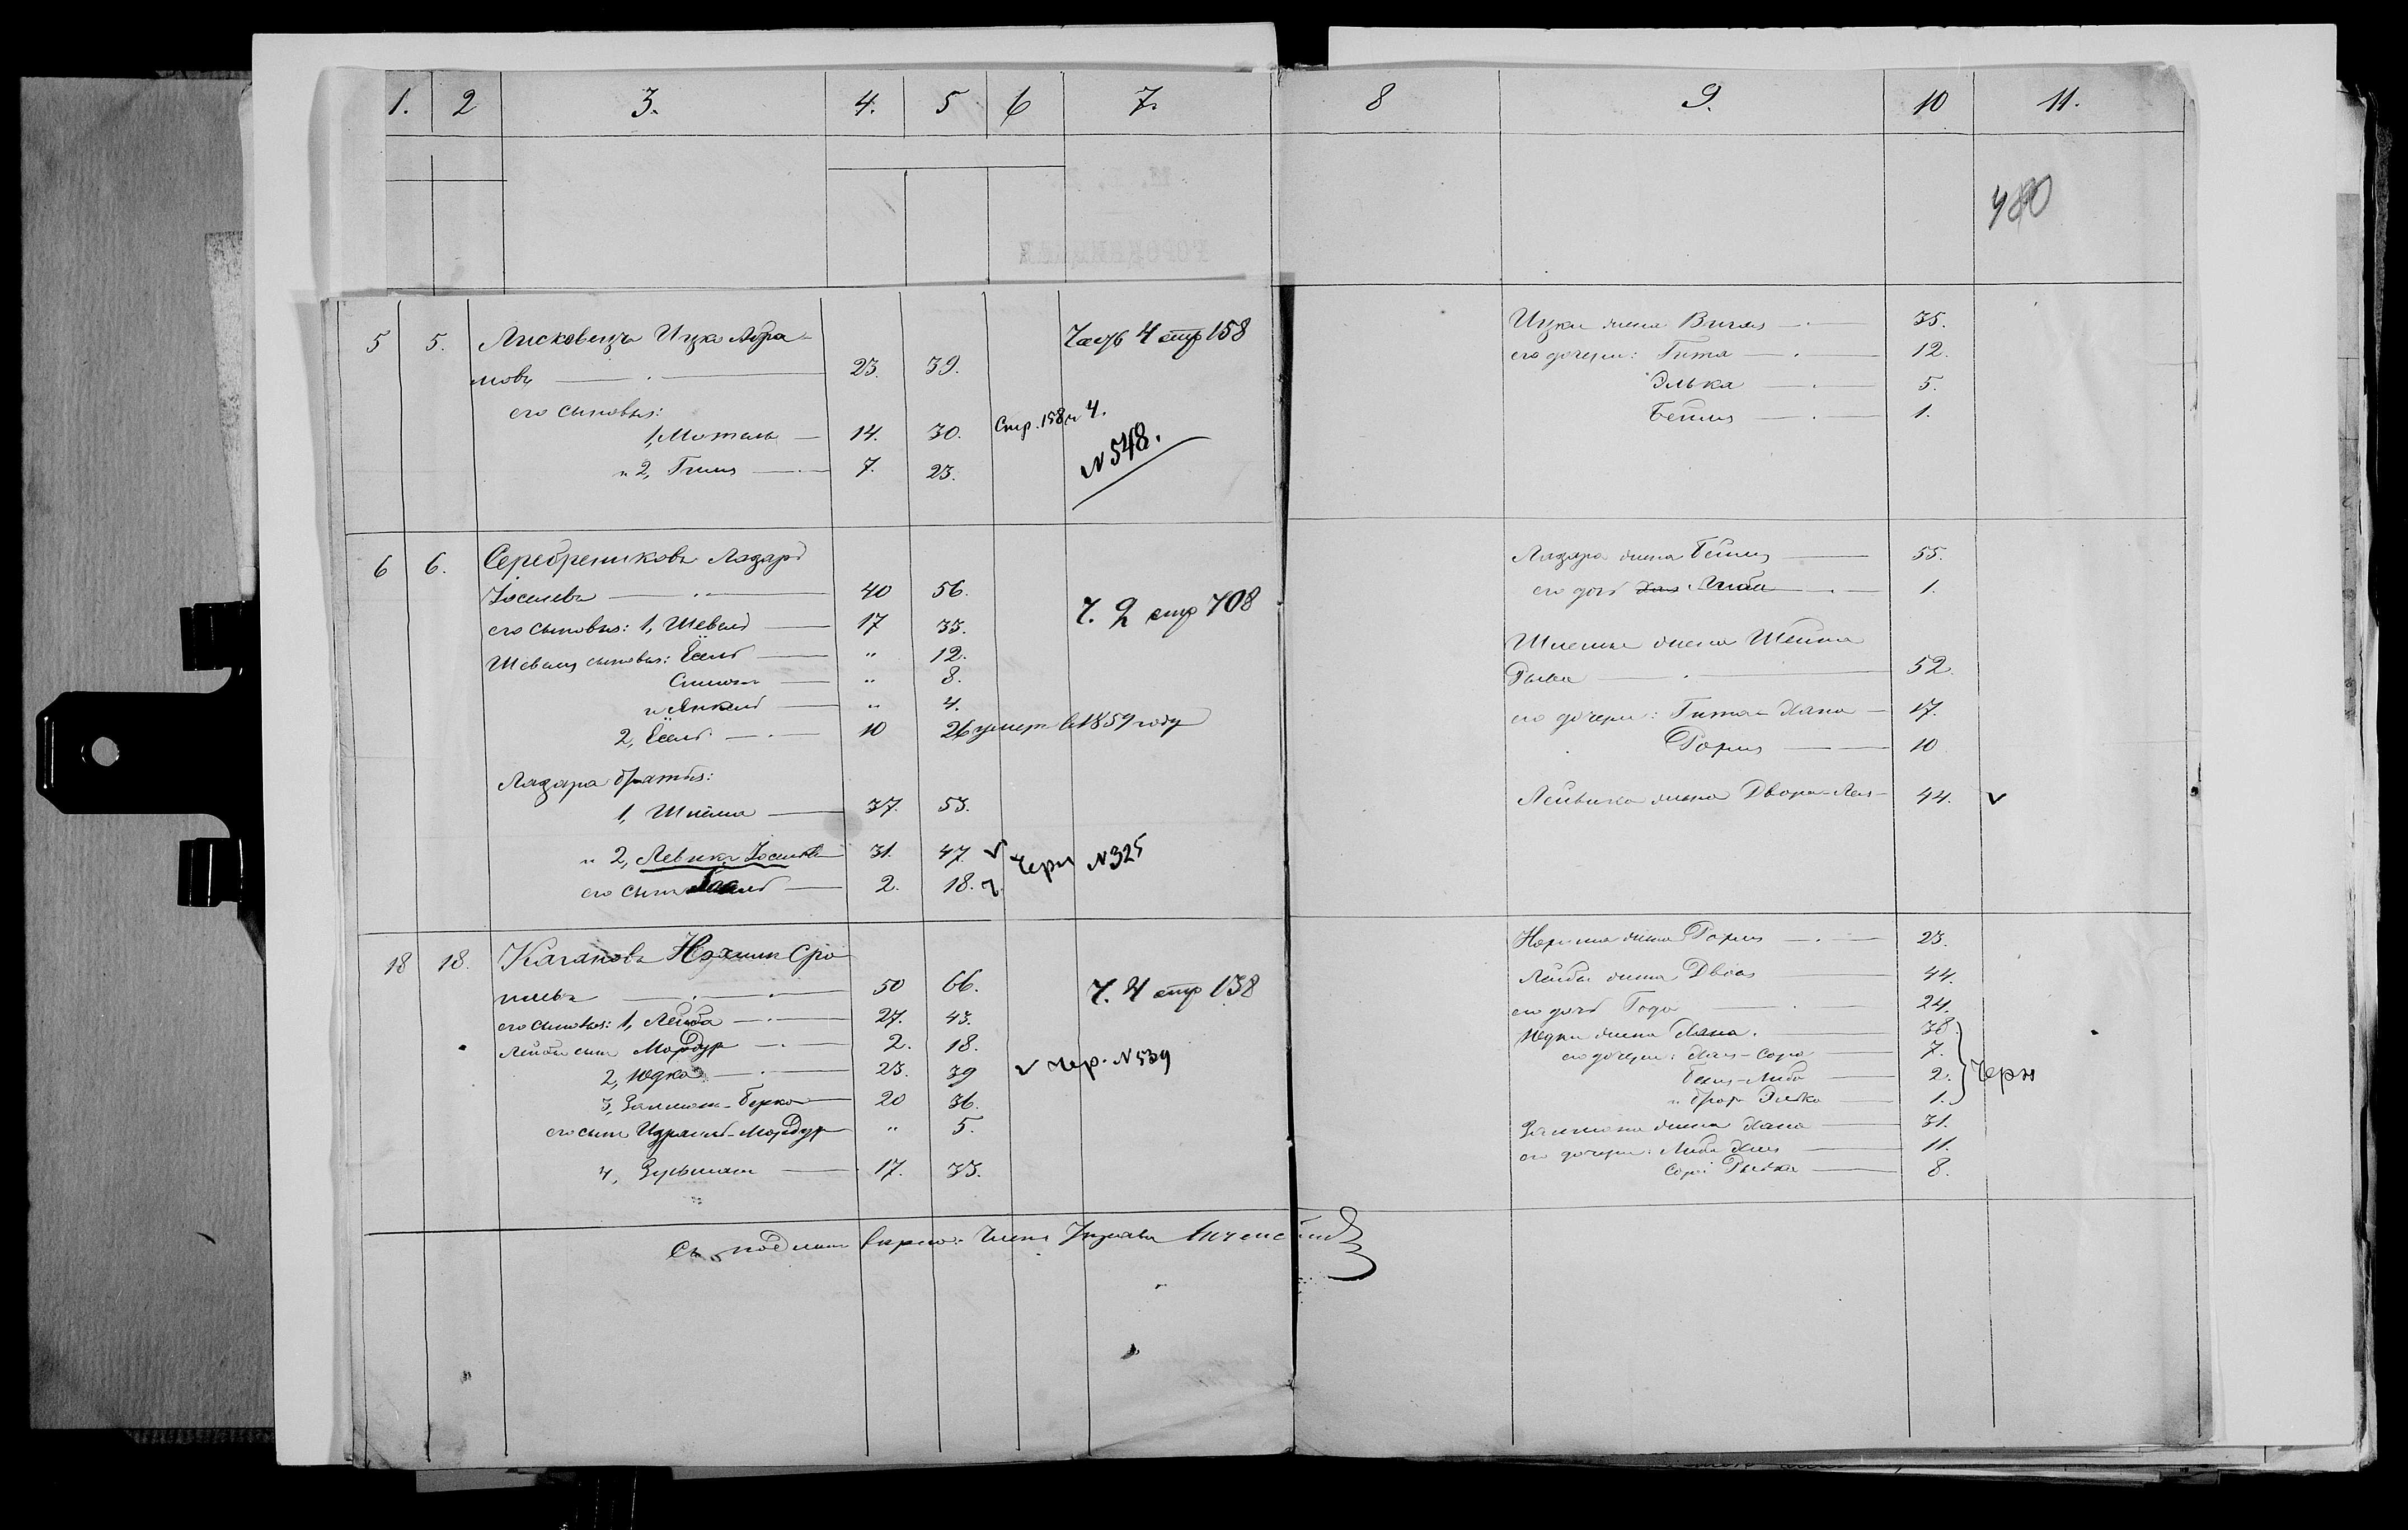 1. 2 3. 4. 5 6 7. 8 9. 10 11.
480
5 5. Лисковецъ Ицка Абра-
мовъ 23. 39. Часть 4 стр 158
его сыновья:
1, Мотель 14. 30. Стр. 158 ч 4.
" 2, 7. 23. N 548.
Ицки жена 35.
его дочери: Гита 12.
Элька 5.
Бейля 1.
6 6. Серебрениковъ Лазарь
Іоселевъ 40 56. Ч. 2 стр 708
его сыновья: 1, Шевель 17 33.
Шевеля сыновья: Ёсель " 12.
" 8.
и Янкель " 4.
2, Ёсель 10 26 умер. в 1859 году
Лазара братья:
1, Шлёма 37. 53.
" 2, Левикъ 31. 47 v Черн N 325
его сынъ 2. 18. ч.
Лазара жена Бейля 55.
его дочь Либа 1.
Шлемы жена Шейна
52.
его дочери: Гита-Хана 17.
Дорея 10
Лейвика жена Двора-Лея 44. v
18 18. Кагановъ Нохимъ Сро
левъ 50 66. Ч. 4 стр 138
его сыновья: 1, Лейба 27. 43.
Лейбы сынъ Мордух 2. 18.
2, Юдка 23. 39 v Чер. N 539
3, Залман-Берко 20 36.
его сынъ Израиль-Мордух " 5.
4, 17. 33.
Нохима жена 23.
Лейбы жена Двося 44.
его дочь Года 24.
Юдки жена Хана. 38.
его дочери: Хая-Сора 7.
-Либа 2. Черн
1.
Залмана жена Хана 31.
его дочери: Либа Хая 11.
Сора 8.
Съ подлин верно: Членъ Управы